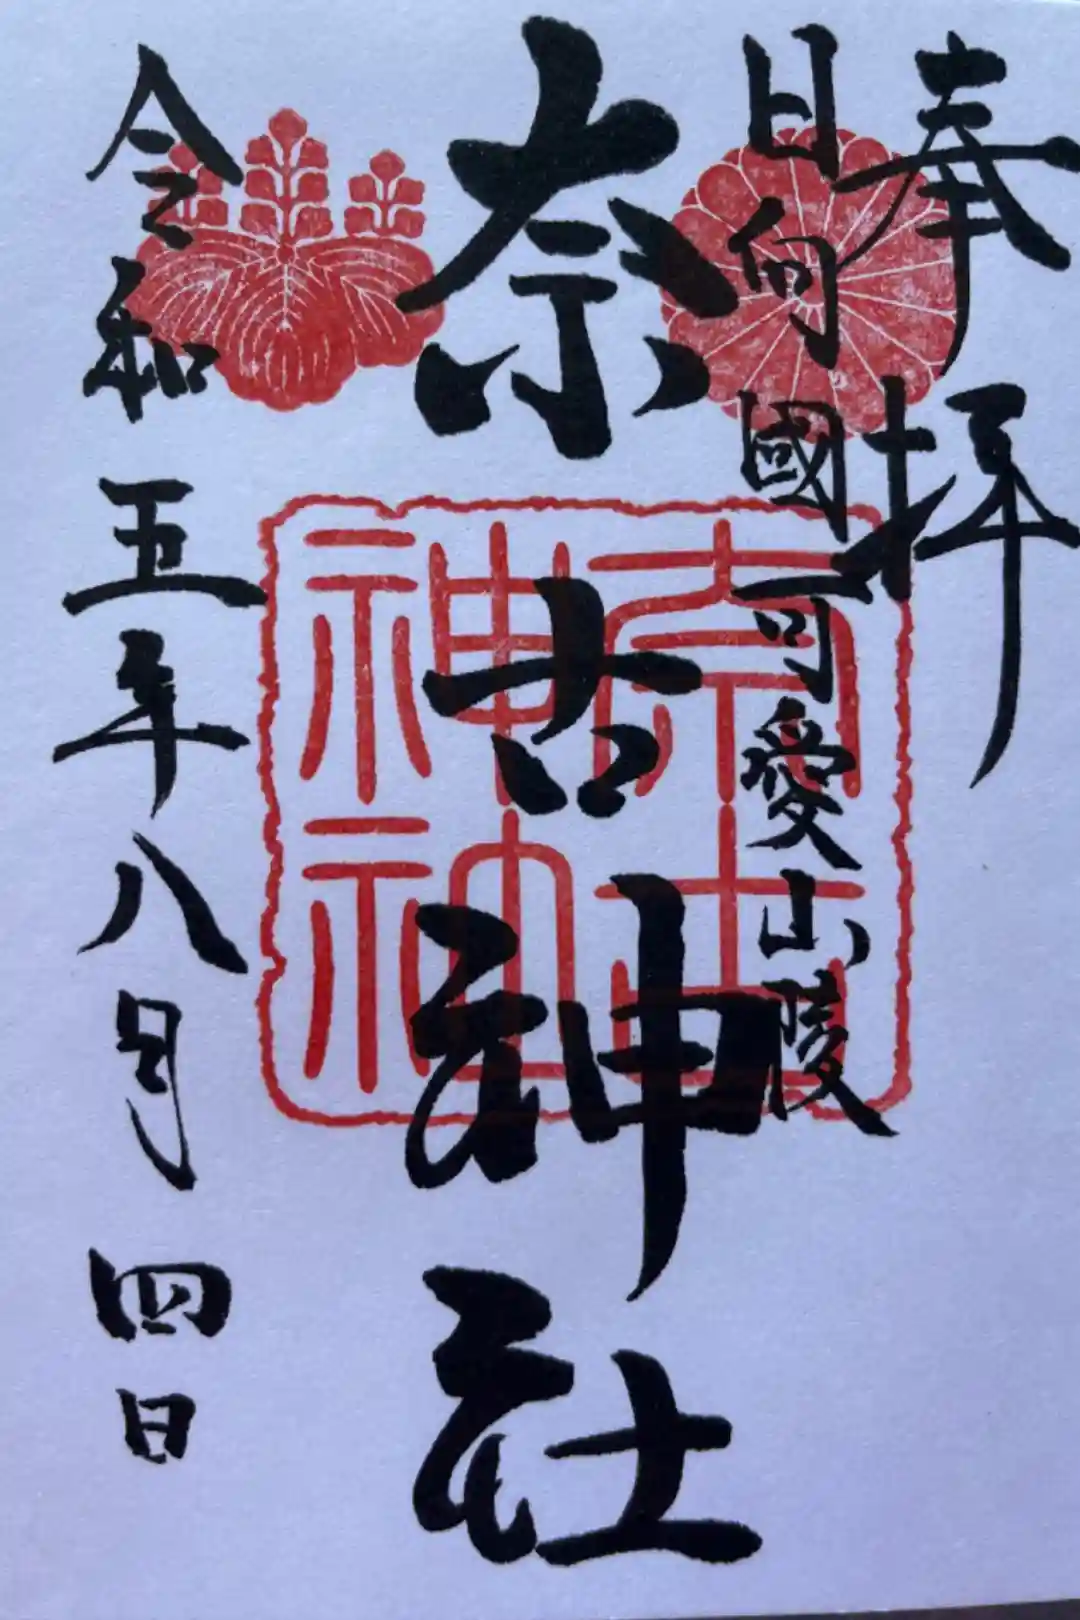 奉拝
日向國可愛山陵
奈古神社
奈古神社
令和五年八月四日